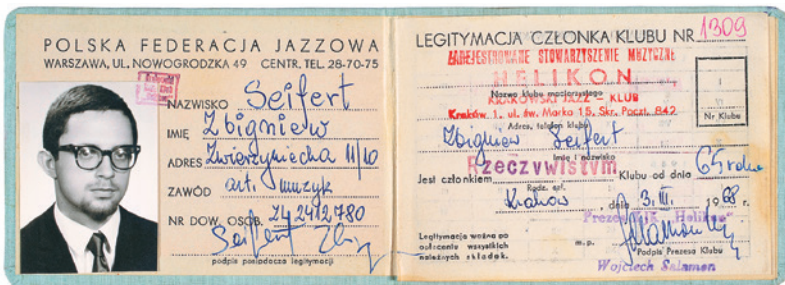 POLSKA FEDERACJA JAZZOWA
WARSZAWA, UL. NOWOGRODZKA 49 CENTR. TEL. 28-70-75
NAZWISKO Seifert
IMIĘ Zbigniew
ADRES Zwierzyniecka 11/10
ZAWÓD art. muzyk
NR DOW. OSOB. ZŁ 2412780
Seifert Zbig
podpis posiadacza legitymacji
LEGITYMACJA CZŁONKA KLUBU NR 1309
ZAREJESTROWANE STOWARZYSZENIE MUZYCZNE
HELIKON
Nazwa klubu macierzystego
KRAKOWSKI JAZZ - KLUB
Kraków 1, ul. św. Marka 15, Skr. Poczt. 842
Adres, telefon klubu
Nr Klubu
Zbigniew Seifert
Imię i nazwisko
Jest członkiem Rzeczywistym Klubu od dnia 65 roku
Rodz. czł.
Kraków, dnia 3. III. 1968 r.
Prezes "Helikon"
Legitymacja ważna po
opłaceniu wszystkich
należnych składek.
m.p.
Podpis Prezesa Klubu
Wojciech Salamon